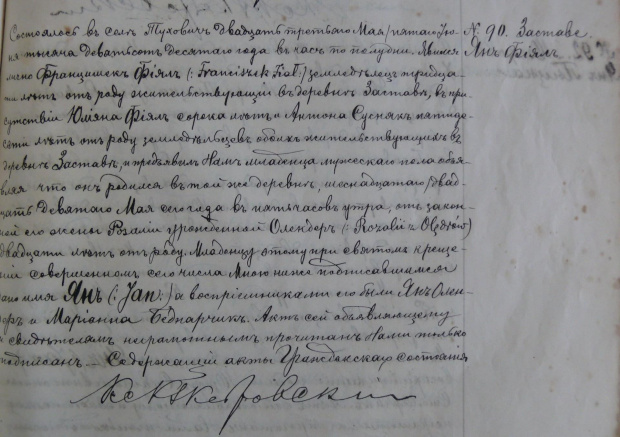 Состоялось въ селѣ Туховичъ двадцать третьяго Мая / пятаго Iю-
ня тысяча девятьсотъ десятаго года въ часъ по полудни. Явился
лично Францишекъ Фіялъ (: Franciszek Fiał :) земледѣлецъ тридца-
ти лѣтъ отъ роду жительствующій въ деревнѣ Заставѣ, въ при-
сутствіи Юліяна Фіялъ сорока лѣтъ и Антона Суснякъ пятиде-
сяти лѣтъ отъ роду земледѣльцевъ обоихъ жительствующихъ въ
деревнѣ Заставѣ, и предъявилъ Намъ младенца мужескаго пола объя-
вляя что онъ родился въ той же деревнѣ, шеснадцатаго / двад-
цать девятаго Мая сего года въ пять часовъ утра, отъ закон-
ной его жены Розаліи урожденной Олендеръ (: Rozalii z Olędrów :)
двадцати лѣтъ отъ роду. Младенцу этому при святомъ креще-
ніи совершенномъ сего числа Мною ниже подписавшимся
дано имя Янъ (: Jan :) а воспріемниками его были Янъ Олен-
деръ и Маріанна Беднарчикъ. Актъ сей объявляющему
и свидѣтелямъ неграмотнымъ прочитанъ Нами только
подписанъ. — Содержащій акты Гражданскаго Состоянія
№ 90. Заставе.
Янъ Фіялъ